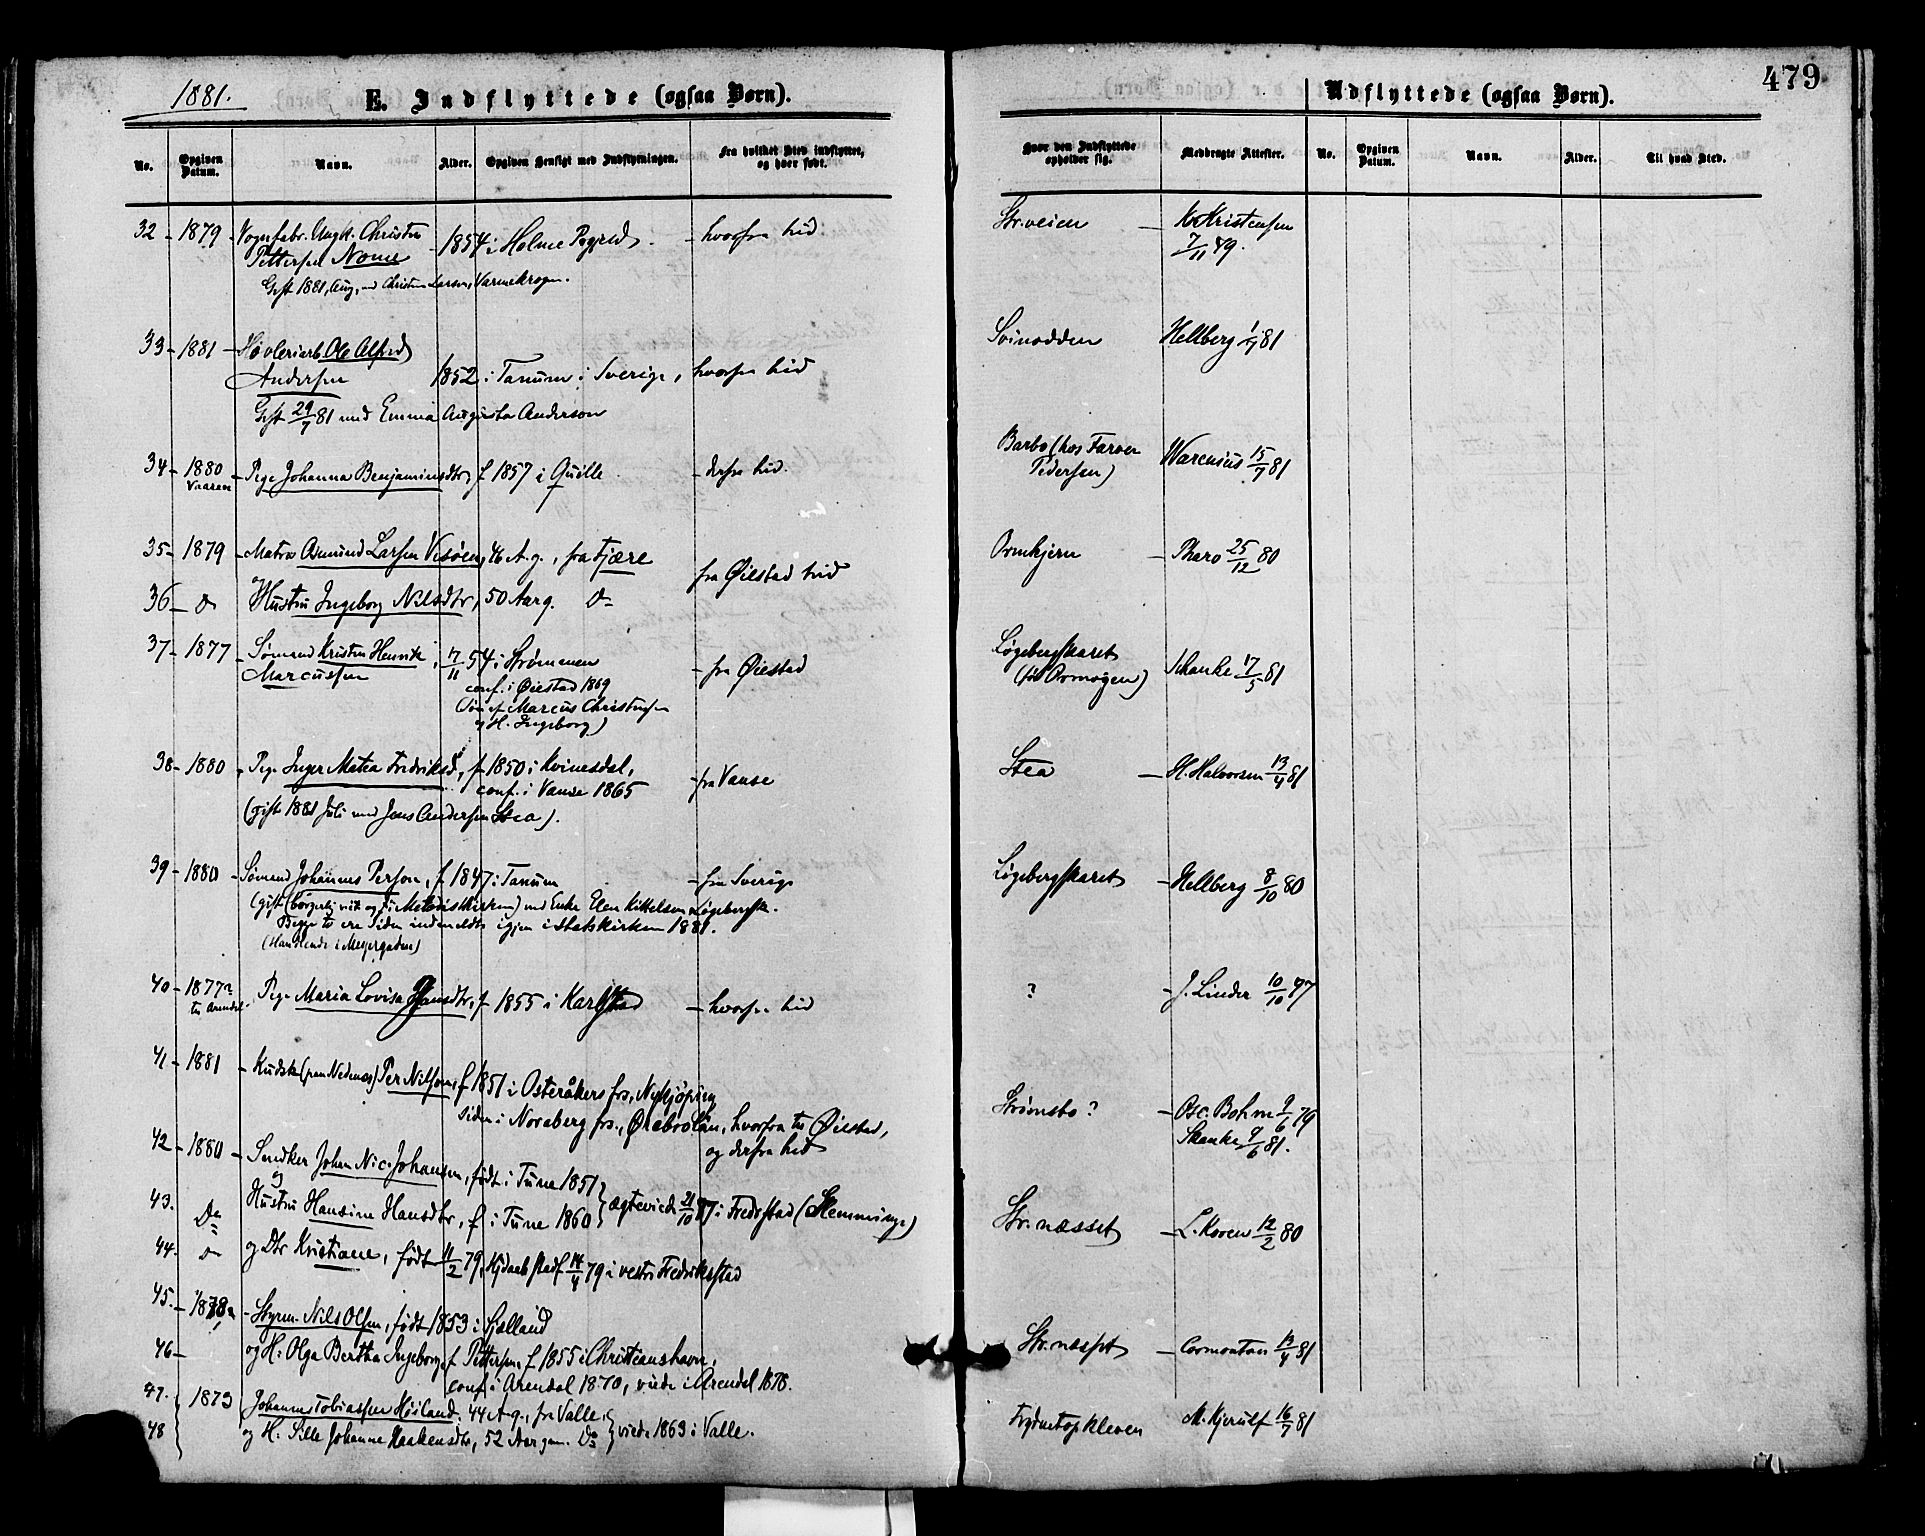 1881.
E. Indflyttede (ogsaa Børn).
Udflyttede (ogsaa Børn).
479
No.
Opgiven Datum.
Navn.
Alder.
Opgiven Hensigt med Indflytningen.
Fra hvilket Sted indflyttet, og hvor født.
Hvor den Indflyttede opholder sig.
Medbragte Attester.
No.
Opgiven Datum.
Navn.
Alder.
Til hvad Sted.
32 - 1879 - Vognfabr. Ungk. Christen 1854 i Holme Pgjeld. - hvorfra hid Str.veien - K. Kristensen
Pettersen Nome 7/11 79.
Gift 1881, Aug, med Christine Larsen, Varmekrogen.
33 - 1881 - Høvleriarb. Ole Alfred Svinodden Hellberg 1/7 81
Andersen 1852 i Tanum i Sverige, hvorfra hid
Gift 29/7 81 med Emma Augusta Anderson
34 - 1880 - Pige Johanna Benjaminsdtr, f 1857 i Quille - derfra hid. Barbo (hos Farver Warenius 15/7 81
Vaaren Pedersen)
35 - 1879 - Matros Asmund Larsen Vesøen, 46 A.g., fra Fjære Ormkjern - Thero 25/12 80
fra Øilstad hid
36 - Do og Hustru Ingeborg Nilsdtr, 50 Aarg. Do
37 - 1877 - Sømand Kristen Henrik 17/11 54 i Strømmen - fra Øiestad Løgebergskaret Skanke 17/5 81
Marcussen conf. i Øiestad 1869 (til Ormogen)
(Søn af Marcus Christensen
og H. Ingeborg)
38 - 1880 - Pige Inger Matea Fredriksd., f 1850 i Kvinesdal, - fra Vanse Stea - H. Halvorsen 13/4 81
conf. i Vanse 1865
(gift 1881 Juli med Jens Andersen Stea).
39 - 1880 - Sømand Johannes Person, f 1847 i Tanum - fra Sverige Løgebergskaret - Hellberg 8/10 80
(gift (borgerlig vist og i Metodistkirken) med Enke Elen Kittelsen Løgebergsk.
Begge to ere siden indmeldte igjen i Statskirken 1881.
(Handlende i Meyergaden)
40 - 1877? - Pige Maria Lovisa Jansdtr, f 1855 i Karlstad - hvorfra hid ? - J. Linder 10/10 77
til Arendal.
41 - 1881 - Kudsk (paa Nedenæs) Per Nilson, f 1851 i Osteråkers frs, Nykjöping
siden i Noraberg frs., Ørebro län, hvorfra til Øiestad, Strømsbo? - Osc. Bohm 9/6 79
og derfra hid Skanke 9/6 81.
42 - 1880 - Snedker Johan Nic. Johansen, født i Tune 1851
43. Do og Hustru Hansine Hansdtr, f i Tune 1860 } ægteviede 21/10 77 i Fredrstad (Glemminge) Str.næsset - L. Koren 12/2 80
44. Do og Dtr Kristiane, født 11/2 79, Hjdøbt stadf 14/4 79 i vestre Fredriksstad
45. - 1878? - Styrm. Nils Olsen, født 1853 i Sjælland
46 - og H. Olga Bertha Ingeborg, f Pettersen, f 1855 i Christianshavn, Str.næsset - Cormontan 13/4 81
conf. i Arendal 1870, viede i Arendal 1878.
47. 1873 Johannes Tobiassen Høiland. 44 A.g., fra Valle, Frydentopkleven M. Kjerulf 16/7 81
48 og H. Sille Johanne Haakensdtr, 52 Aar gm. Do } viede 1863 i Valle.